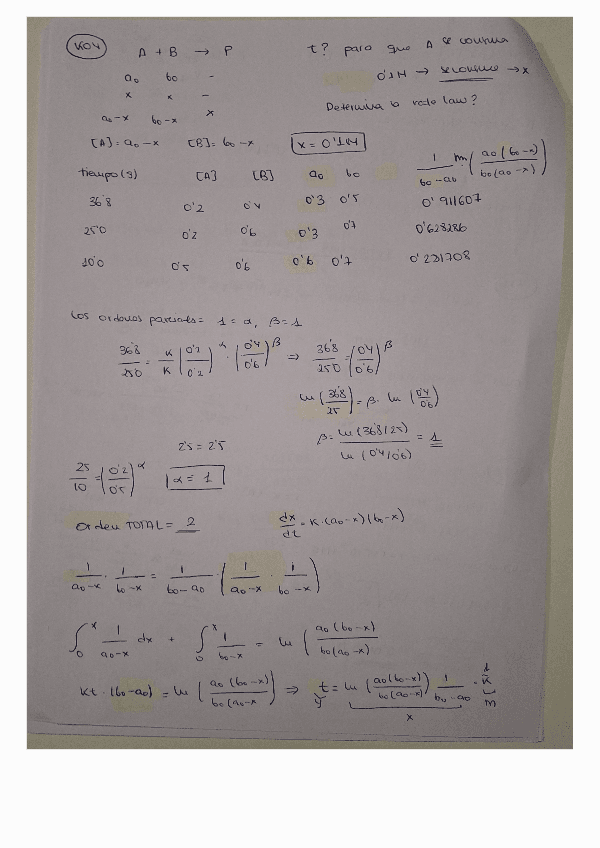 K04
A + B → P
t? para que A se consuma
0'1M → se consume → x
a₀ b₀ -
x x -
a₀-x b₀-x x
Determina la rate law?
[A] = a₀-x [B] = b₀-x x = 0'1M
tiempo(s) [A] [B] a₀ b₀ 1/(b₀-a₀) · ln (a₀(b₀-x)/b₀(a₀-x))
36'8 0'2 0'4 0'3 0'5 0'911607
25'0 0'2 0'6 0'3 0'7 0'628286
10'0 0'5 0'6 0'6 0'7 0'221708
Los ordenes parciales = 1 = α, β = 1
36'8/25'0 = K/K (0'2/0'2)^α · (0'4/0'6)^β ⇒ 36'8/25'0 = (0'4/0'6)^β
ln (36'8/25) = β · ln (0'4/0'6)
β = ln(36'8/25)/ln(0'4/0'6) = 1
2'5 = 2'5
25/10 = (0'2/0'5)^α α = 1
Orden TOTAL = 2 dx/dt = K·(a₀-x)(b₀-x)
1/(a₀-x) · 1/(b₀-x) = 1/(b₀-a₀) · (1/(a₀-x) · 1/(b₀-x))
∫₀ˣ 1/(a₀-x) dx + ∫₀ˣ 1/(b₀-x) = ln (a₀(b₀-x)/b₀(a₀-x))
Kt·(b₀-a₀) = ln (a₀(b₀-x)/b₀(a₀-x) ⇒ t = ln (a₀(b₀-x)/b₀(a₀-x)) 1/(b₀-a₀) · 1/K
y x m